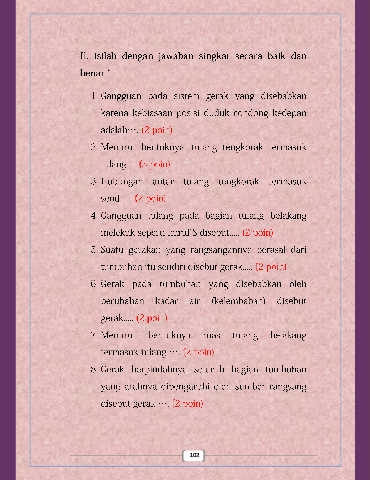 II. Isilah dengan jawaban singkat secara baik dan
benar!
1. Gangguan pada sistem gerak yang disebabkan
karena kebiasaan posisi duduk condong kedepan
adalah…. (2 poin)
2. Menurut bentuknya tulang tengkorak termasuk
tulang.... (2 poin)
3. Hubungan antar tulang tengkorak termasuk
sendi.... (2 poin)
4. Gangguan tulang pada bagian tulang belakang
melekuk seperti huruf S disebut..... (2 poin)
5. Suatu gerakan yang rangsangannya berasal dari
tumbuhan itu sendiri disebut gerak..... (2 poin)
6. Gerak pada tumbuhan yang disebabkan oleh
perubahan kadar air (kelembaban) disebut
gerak..... (2 poin)
7. Menurut bentuknya ruas tulang belakang
termasuk tulang …. (2 poin)
8. Gerak berpindahnya seluruh bagian tumbuhan
yang arahnya dipengaruhi oleh sumber rangsang
disebut gerak …. (2 poin)
102